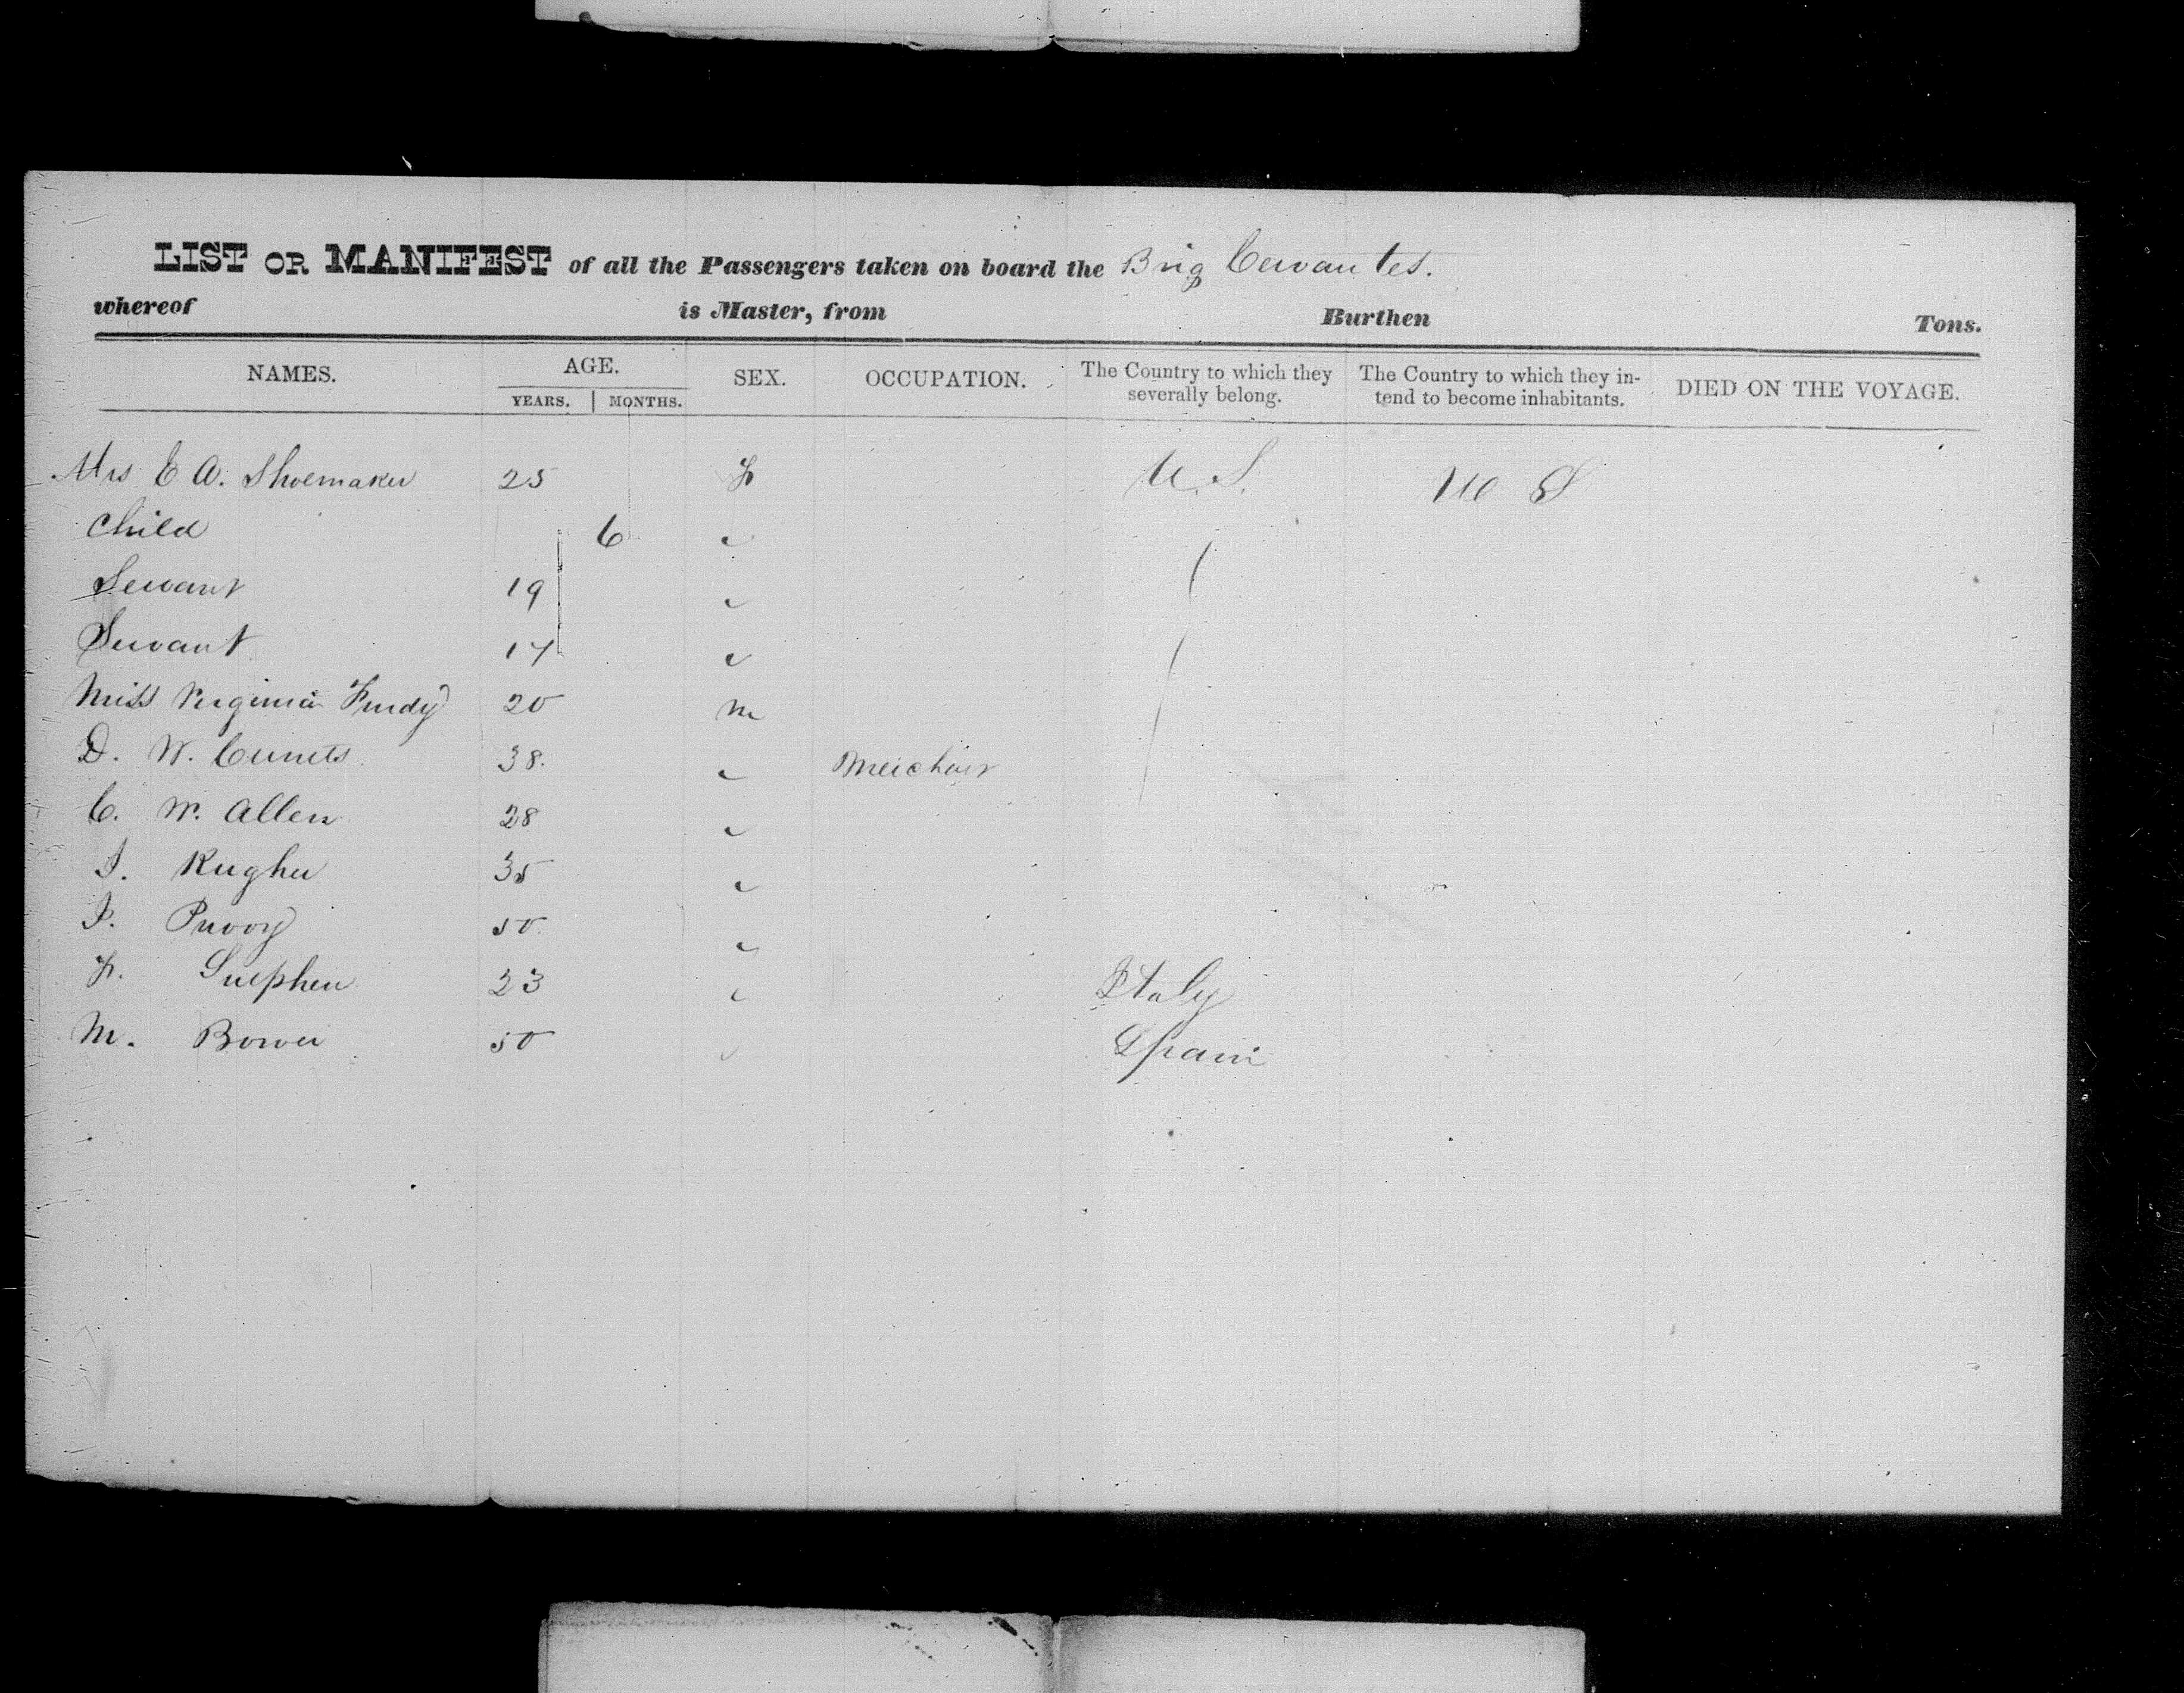 LIST OR MANIFEST of all the Passengers taken on board the Brig Cervantes.
whereof is Master, from Burthen Tons.
NAMES. AGE. SEX. OCCUPATION. The Country to which they severally belong. The Country to which they intend to become inhabitants. DIED ON THE VOYAGE.
YEARS. MONTHS.
Mrs E A. Shoemaker 25 F U.S. U S
Child 6 "
Servant 19 "
Servant 14 "
Miss Virginia 20 m
D. W. 38. " Merchant
C. W. Allen 28 "
35 "
50 "
F. 23 " Italy
M. 50 " Spain